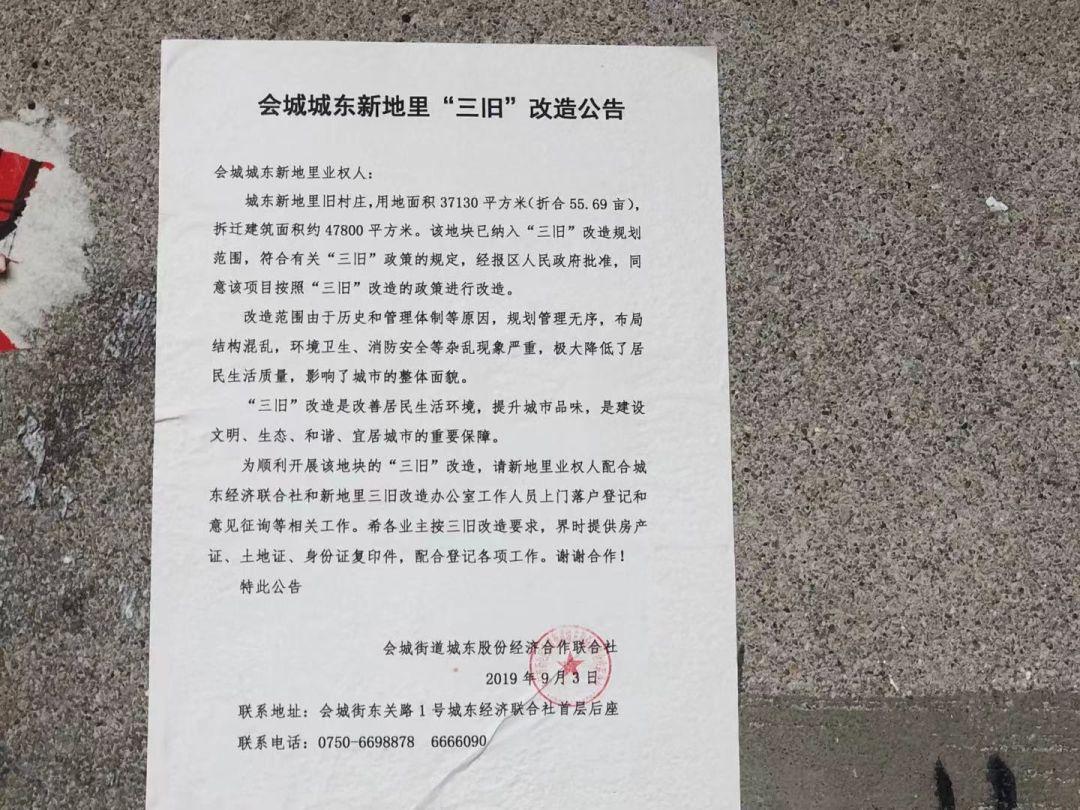 会城城东新地里“三旧”改造公告
会城城东新地里业权人：
城东新地里旧村庄，用地面积37130平方米（折合55.69亩），
拆迁建筑面积约47800平方米。该地块已纳入“三旧”改造规划
范围，符合有关“三旧”政策的规定，经报区人民政府批准，同
意该项目按照“三旧”改造的政策进行改造。
改造范围由于历史和管理体制等原因，规划管理无序，布局
结构混乱，环境卫生、消防安全等杂乱现象严重，极大降低了居
民生活质量，影响了城市的整体面貌。
“三旧”改造是改善居民生活环境，提升城市品味，是建设
文明、生态、和谐、宜居城市的重要保障。
为顺利开展该地块的“三旧”改造，请新地里业权人配合城
东经济联合社和新地里三旧改造办公室工作人员上门落户登记和
意见征询等相关工作。希各业主按三旧改造要求，界时提供房产
证、土地证、身份证复印件，配合登记各项工作。谢谢合作！
特此公告
会城街道城东股份经济合作联合社
2019年9月3日
联系地址：会城街东关路1号城东经济联合社首层后座
联系电话：0750-6698878 6666090